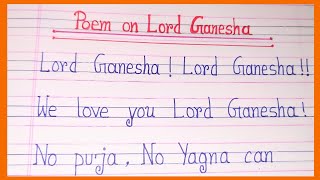 Poem on Lord Ganesha
Lord Ganesha! Lord Ganesha!!
We love you Lord Ganesha!
No purja, No Yagna can